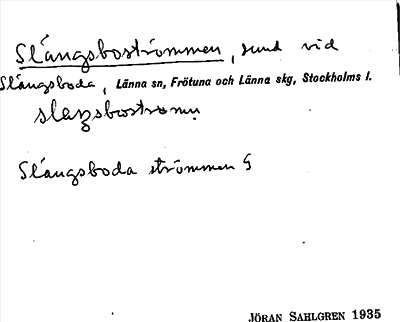 Slångsboströmmen, sund vid
Slångsboda, Länna sn, Frötuna och Länna skg, Stockholms l.
Slångsboda strömmen §
JÖRAN SAHLGREN 1935